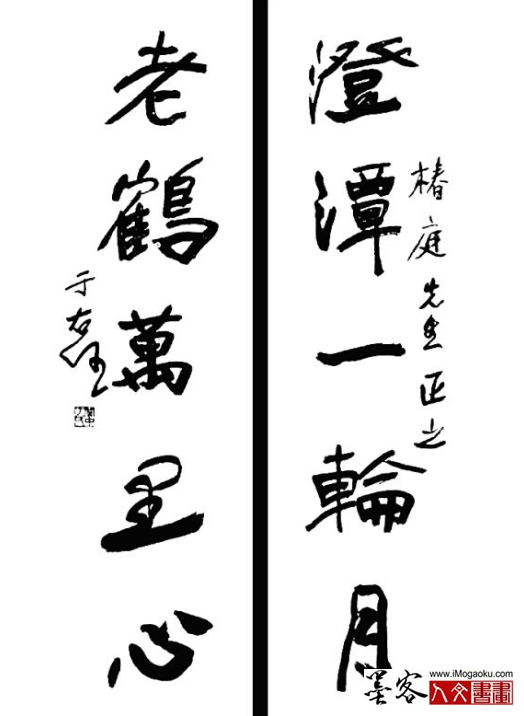 椿庭先生正之
澄潭一輪月
老鶴萬里心
于右任
墨客
www.iMogaoku.com
人文書畫